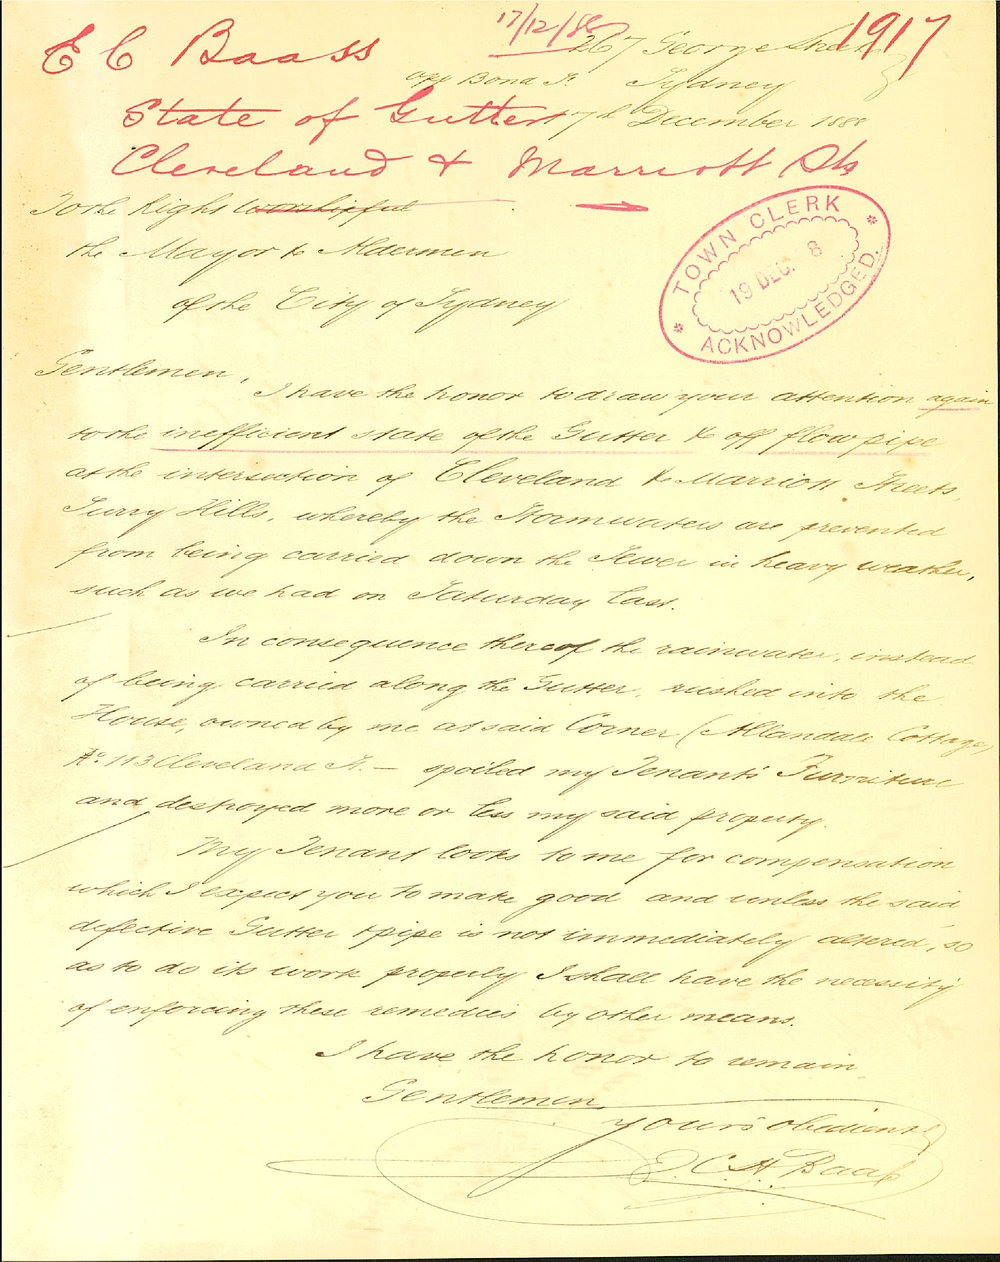 17/12/88
1917
E C Baass
267 George Street
opp Bond St. Sydney
State of Gutters
17th December 1888
Cleveland & Marriott Sts
To the Right Worshipful
the Mayor & Aldermen
of the City of Sydney
TOWN CLERK
19 DEC. 8
ACKNOWLEDGED.
Gentlemen,
I have the honor to draw your attention again
to the inefficient state of the Gutter & off flow pipe
at the intersection of Cleveland & Marriott Streets,
Surry Hills, whereby the Stormwaters are prevented
from being carried down the Sewer in heavy weather,
such as we had on Saturday last.
In consequence thereof the rainwater, instead
of being carried along the Gutter, rushed into the
House, owned by me at said Corner (Allandale Cottage,)
No. 113 Cleveland St. — spoiled my Tenant's Furniture
and destroyed more or less my said property.
My Tenant looks to me for compensation
which I expect you to make good and unless the said
defective Gutter & pipe is not immediately altered, so
as to do its work properly I shall have the necessity
of enforcing these remedies by other means.
I have the honor to remain
Gentlemen
Yours obedient
C. H. Baass